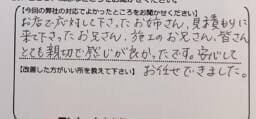 【今回の弊社の対応でよかったところをお聞かせください】
お店で応対して下さったお姉さん、見積もりに
来て下さったお兄さん、施工のお兄さん、皆さん
とても親切で感じが良かったです。安心して
お任せできました。
【改善した方がいい所を教えて下さい】